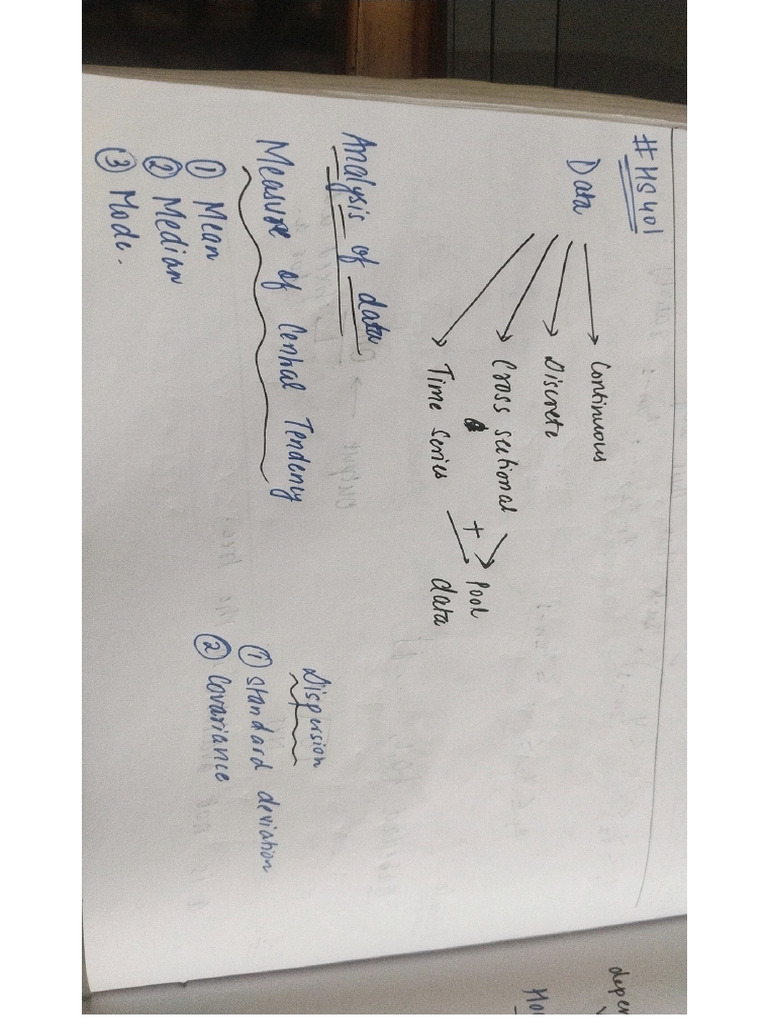 # HS401
Data
Continuous
Discrete
Cross sectional
+
Time Series
Pool
data
Analysis of data
Measure of Central Tendency
① Mean
② Median
③ Mode.
Dispersion
① standard deviation
② Covariance
depen